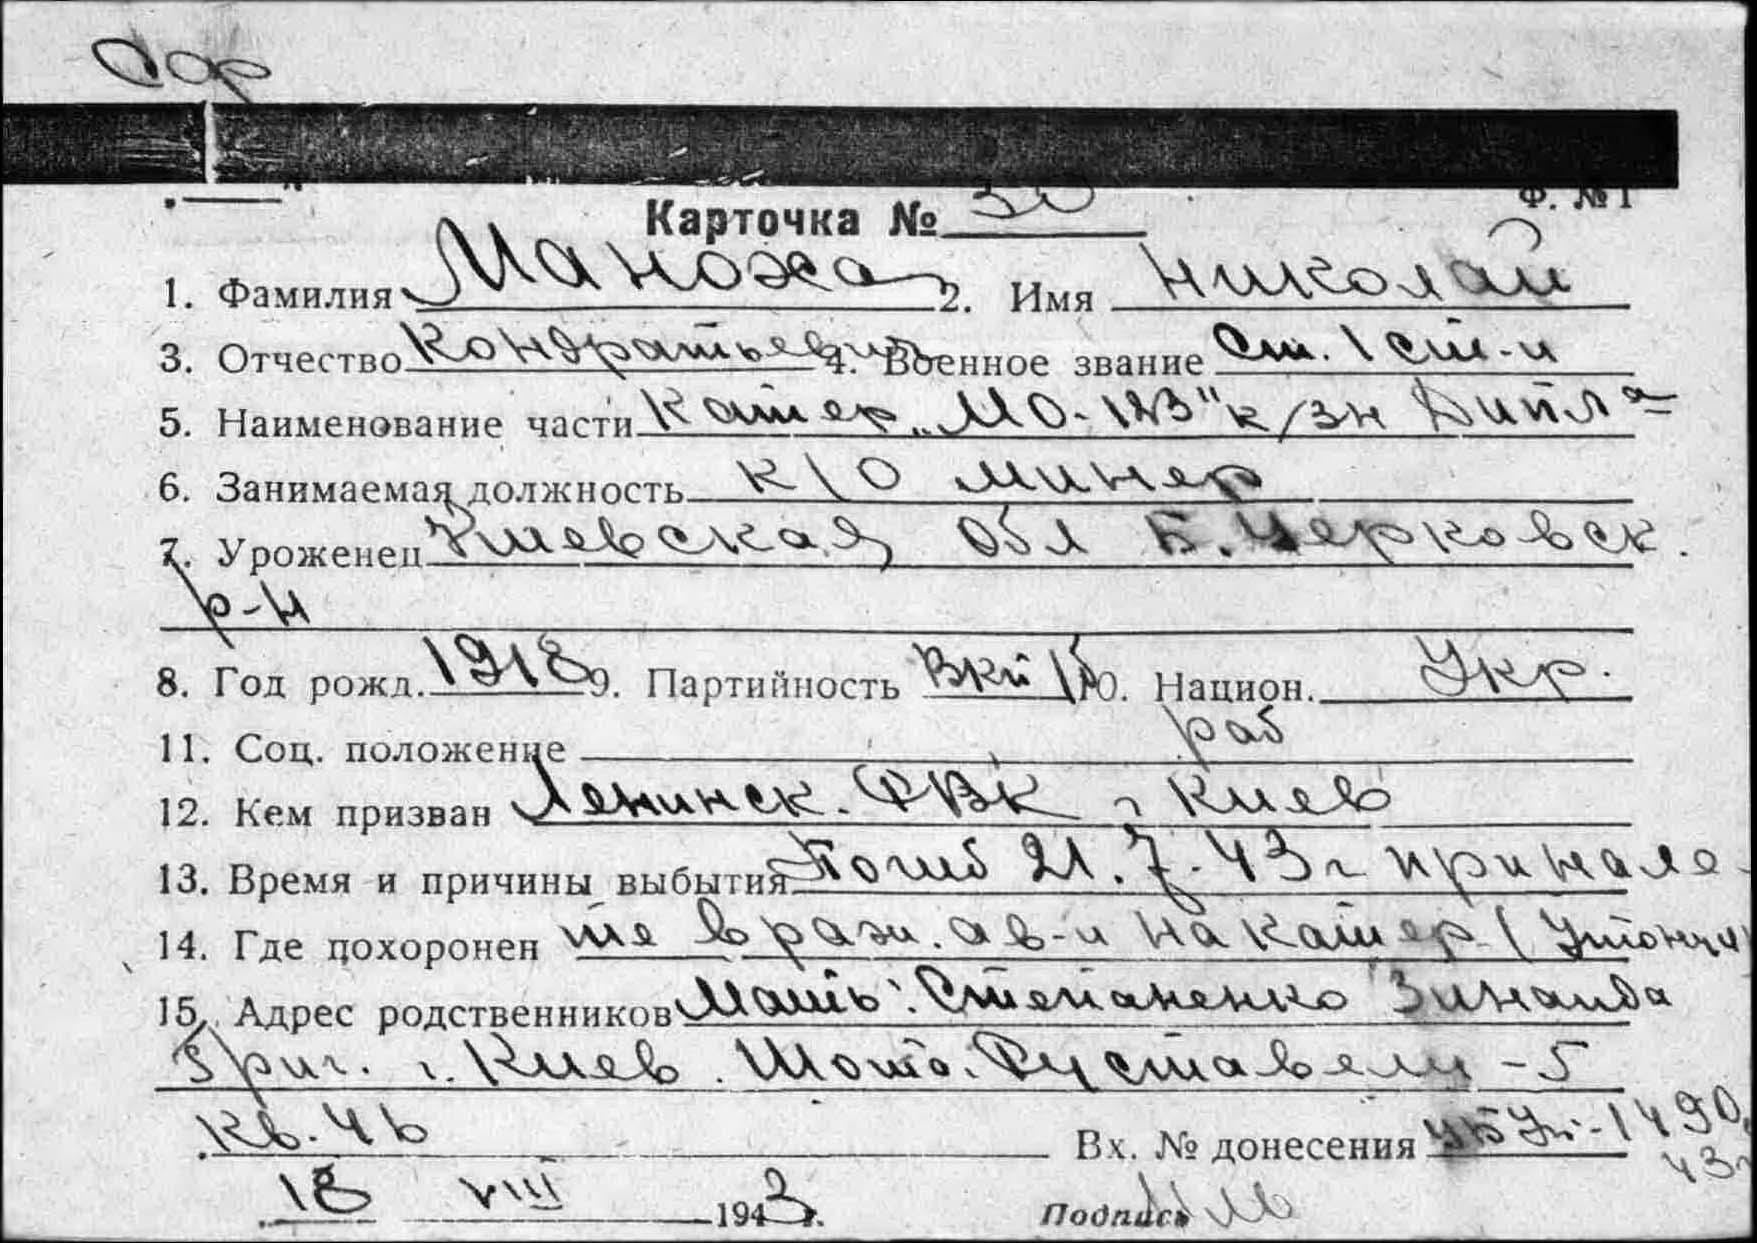 Ф. № 1
Карточка № 30
1. Фамилия Маноха 2. Имя Николай
3. Отчество Кондратьевич 4. Военное звание Ст. 1 ст-и
5. Наименование части Катер „МО-123" к/зн
6. Занимаемая должность к/о минер
7. Уроженец Киевская обл Б. Черковск.
р-н
8. Год рожд. 1918 9. Партийность ВКП/б 10. Национ. Укр.
11. Соц. положение раб
12. Кем призван Ленинск. РВК г Киев
13. Время и причины выбытия Погиб 21.7.43 г при нале-
14. Где похоронен те враж. ав-и на катер (Утонул)
15. Адрес родственников Мать: Степаненко Зинаида
Григ. г. Киев. Шота. Руставели - 5
кв. 46
Вх. № донесения 1490
43г
18 VIII 1943 г. Подпись